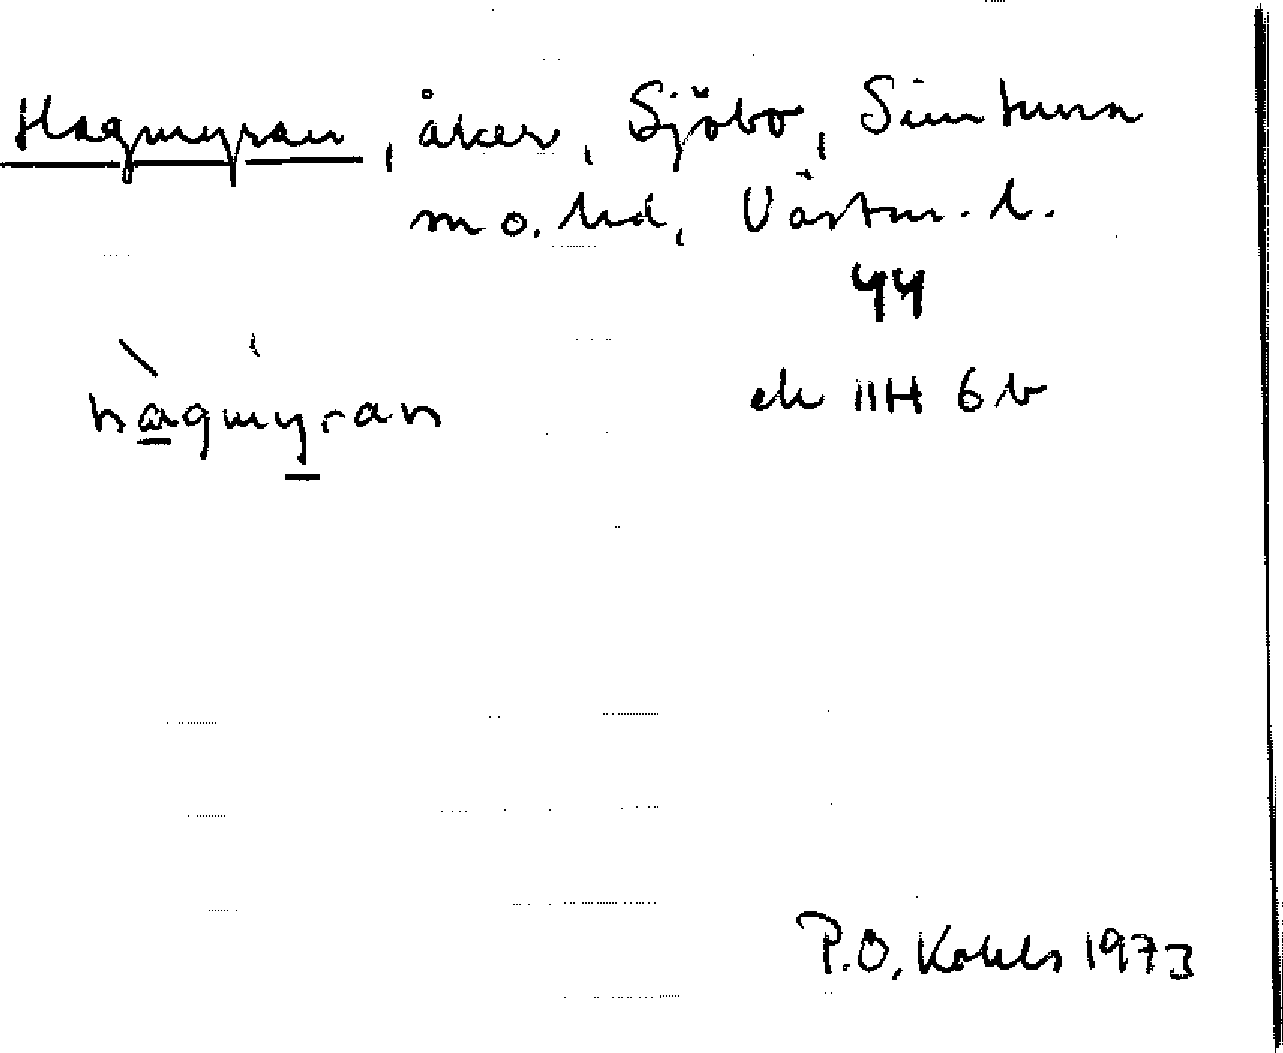 Hagmyran, åker, Sjöbo, Simtuna
sn o. hd, Västm. l.
44
hagmyran
ek 11H 6b
P.O. Kohls 1973